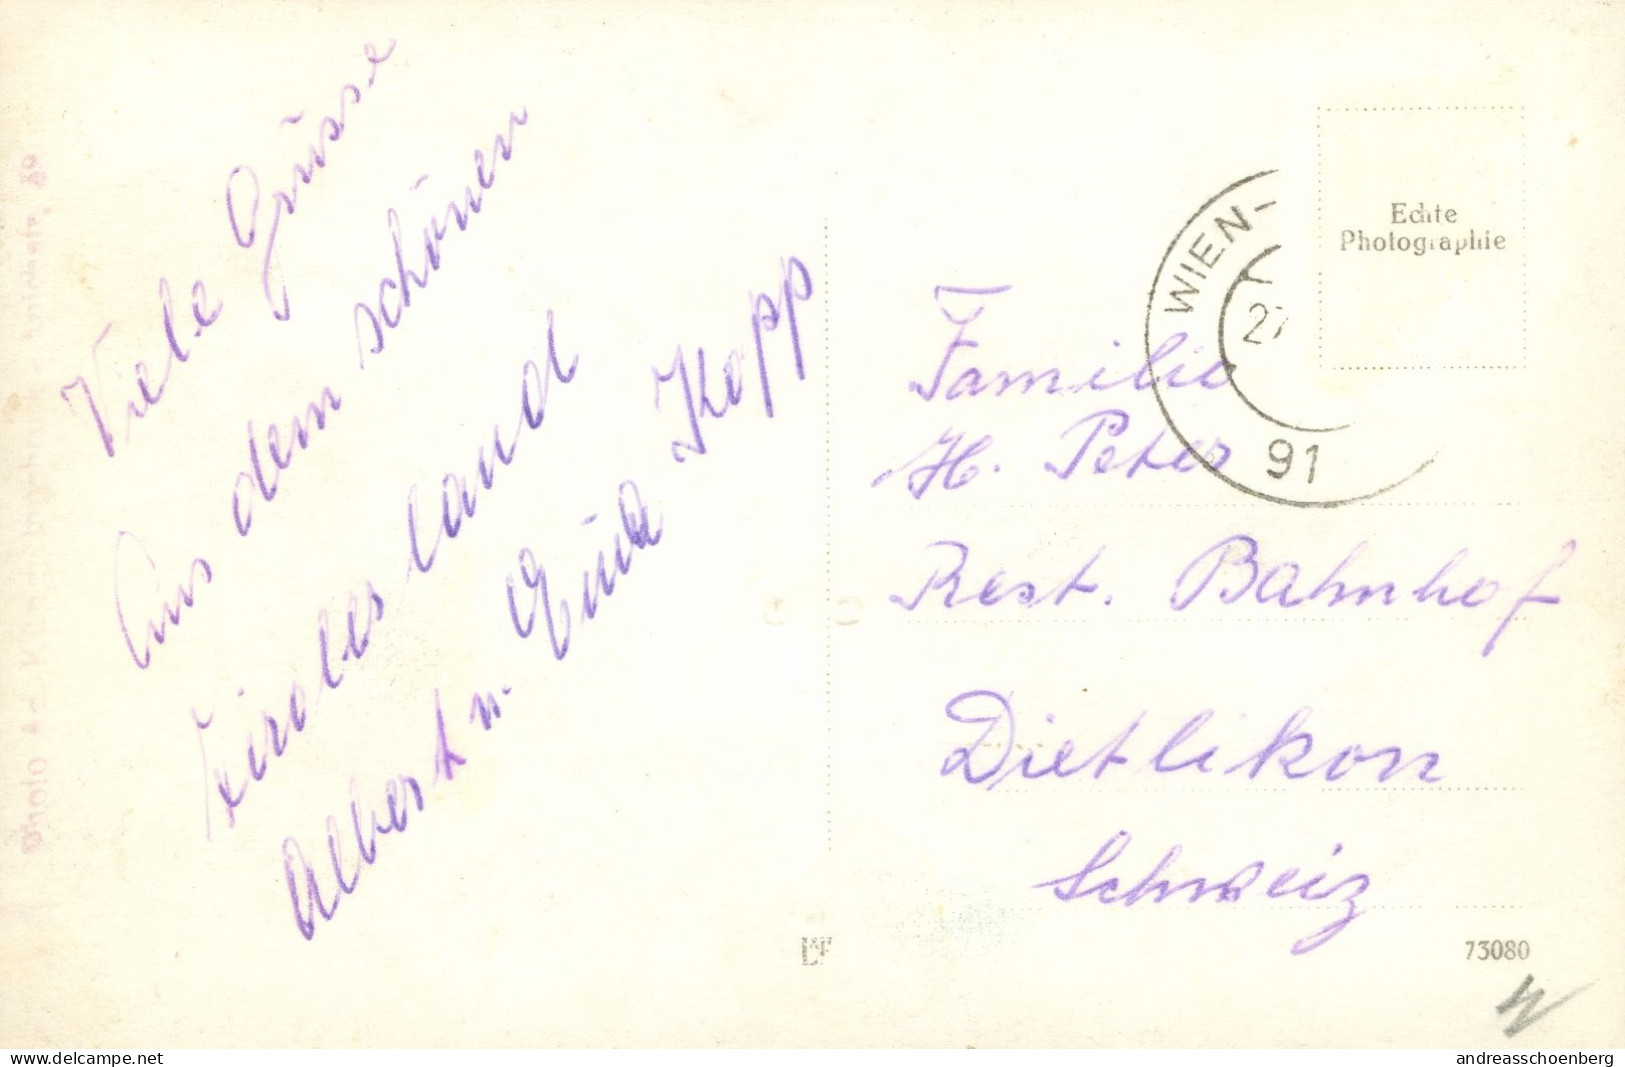 Viele Grüsse
aus dem schönen
Tirolerland
Albert u. Kopp
Echte
Photographie
WIEN-
27
91
Familie
H. Peter
Rest. Bahnhof
Dietlikon
Schweiz
73080
www.delcampe.net
andreasschoenberg